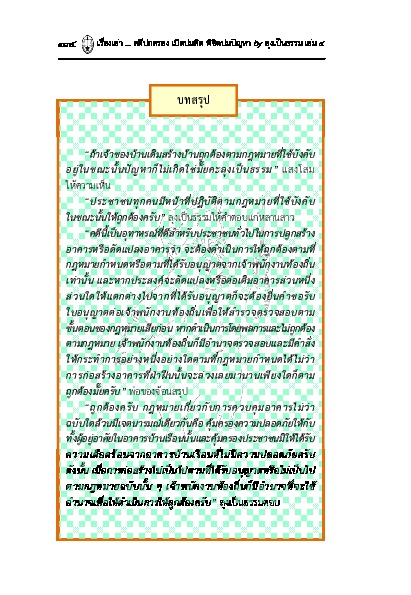 เรื่องเล่า ... คดีปกครอง เปิดปมคิด พิชิตปมปัญหา by ลุงเป็นธรรม เล่ม ๔
บทสรุป
“ถ้าเจ้าของบ้านเดิมสร้างบ้านถูกต้องตามกฎหมายที่ใช้บังคับ
อยู่ในขณะนั้นปัญหาก็ไม่เกิดใช่มั้ยคะลุงเป็นธรรม” แสงโสม
ให้ความเห็น
“ประชาชนทุกคนมีหน้าที่ปฏิบัติตามกฎหมายที่ใช้บังคับ
ในขณะนั้นให้ถูกต้องครับ” ลุงเป็นธรรมให้คำตอบแก่หลานสาว
“คดีนี้เป็นอุทาหรณ์ที่ดีสำหรับประชาชนทั่วไปในการปลูกสร้าง
อาคารหรือดัดแปลงอาคารว่า จะต้องดำเนินการให้ถูกต้องตามที่
กฎหมายกำหนดหรือตามที่ได้รับอนุญาตจากเจ้าพนักงานท้องถิ่น
เท่านั้น และหากประสงค์จะดัดแปลงหรือต่อเติมอาคารส่วนหนึ่ง
ส่วนใดให้แตกต่างไปจากที่ได้รับอนุญาตก็จะต้องยื่นคำขอรับ
ใบอนุญาตต่อเจ้าพนักงานท้องถิ่นเพื่อให้สำรวจตรวจสอบตาม
ขั้นตอนของกฎหมายเสียก่อน หากดำเนินการโดยพลการและไม่ถูกต้อง
ตามกฎหมาย เจ้าพนักงานท้องถิ่นก็มีอำนาจตรวจสอบและมีคำสั่ง
ให้กระทำการอย่างหนึ่งอย่างใดตามที่กฎหมายกำหนดได้ไม่ว่า
การก่อสร้างอาคารที่ฝ่าฝืนนั้นจะล่วงเลยมานานเพียงใดก็ตาม
ถูกต้องมั้ยครับ” พ่อของจ้อนสรุป
“ถูกต้องครับ กฎหมายเกี่ยวกับการควบคุมอาคารไม่ว่า
ฉบับใดล้วนมีเจตนารมณ์เดียวกันคือ คุ้มครองความปลอดภัยให้กับ
ทั้งผู้อยู่อาศัยในอาคารบ้านเรือนนั้นและคุ้มครองประชาชนมิให้ได้รับ
ความเดือดร้อนจากอาคารบ้านเรือนที่ไม่มีความปลอดภัยครับ
ดังนั้น เมื่อการก่อสร้างไม่เป็นไปตามที่ได้รับอนุญาตหรือไม่เป็นไป
ตามกฎหมายฉบับนั้น ๆ เจ้าพนักงานท้องถิ่นก็มีอำนาจที่จะใช้
อำนาจเพื่อให้ดำเนินการให้ถูกต้องครับ” ลุงเป็นธรรมตอบ